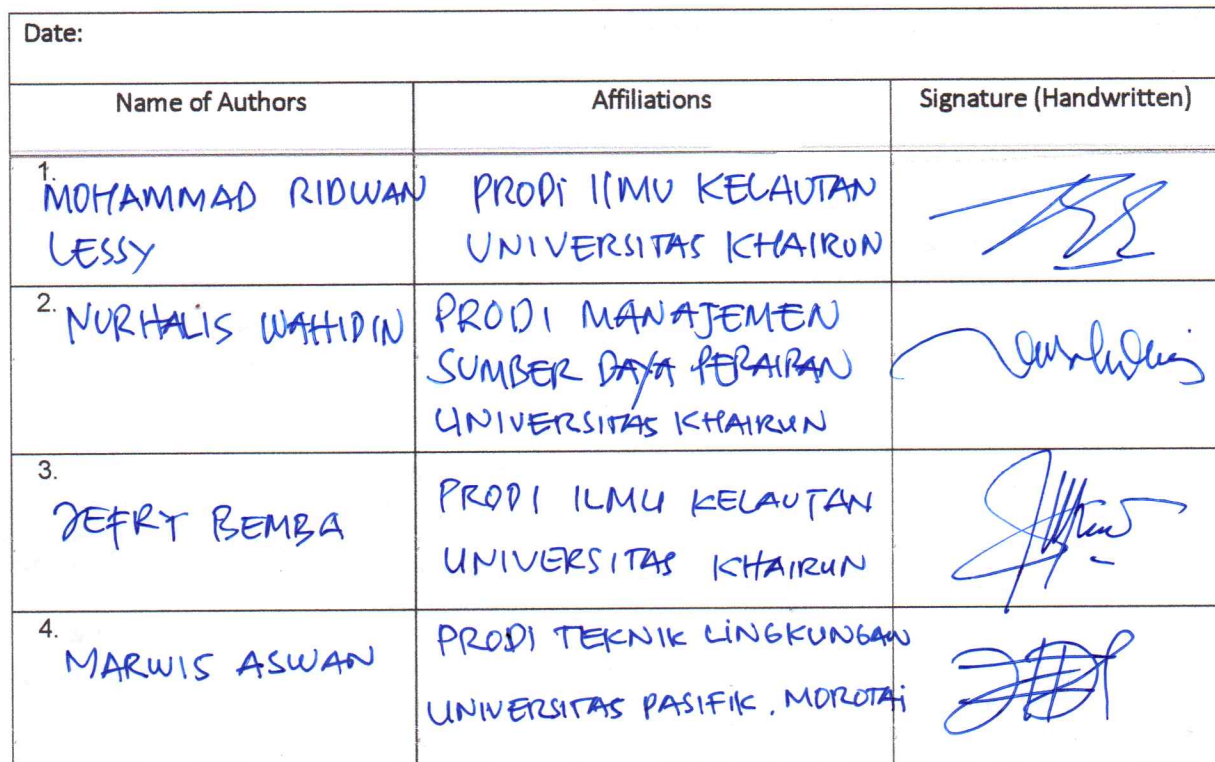 Date:
Name of Authors Affiliations Signature (Handwritten)
1.
MOHAMMAD RIDWAN
LESSY
PRODI ILMU KELAUTAN
UNIVERSITAS KHAIRUN
2.
NURHALIS WAHIDIN
PRODI MANAJEMEN
SUMBER DAYA PERAIRAN
UNIVERSITAS KHAIRUN
3.
JEFRY BEMBA
PRODI ILMU KELAUTAN
UNIVERSITAS KHAIRUN
4.
MARWIS ASWAN
PRODI TEKNIK LINGKUNGAN
UNIVERSITAS PASIFIK. MOROTAI